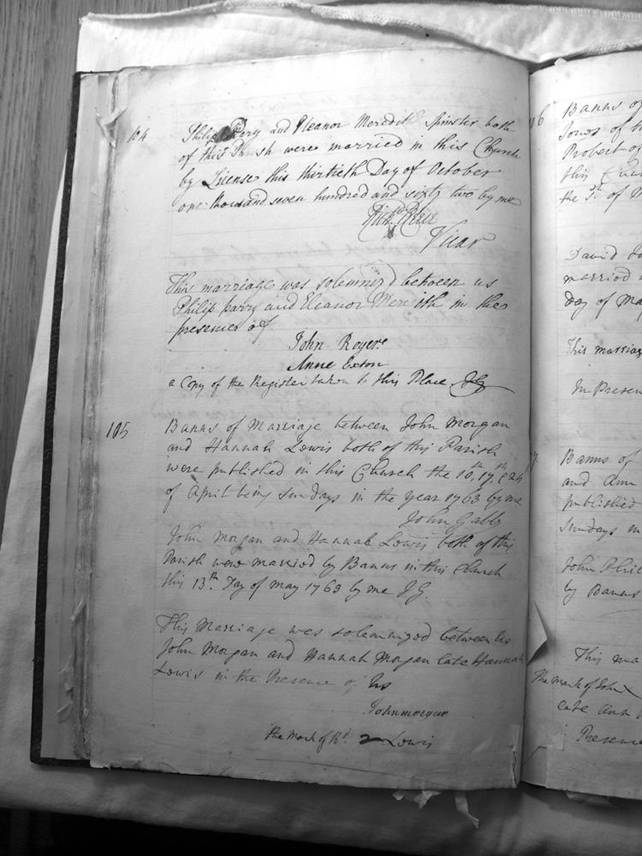 104
Philip Parry and Eleanor Meredith Spinster both
of this Parish were married in this Church
by License this thirtieth Day of October
one thousand seven hundred and sixty two by me
Vicar
This marriage was solemnized between us
Philip parry and Eleanor Meredith in the
presence of
John Rogers
Anne Exton
a Copy of the Register taken to this Place JG
105
Banns of Marriage between John Morgan
and Hannah Lewis both of this Parish
were published in this Church the 10th, 17th & 24
of April being Sundays in the year 1763 by me
John Gabb
John Morgan and Hannah Lewis both of this
Parish were married by Banns in this Church
this 13th. Day of may 1763 by me JG
This Marriage was solemnized between us
John Morgan and Hannah Morgan late Hannah
Lewis in the Presence of Us
John morgan
the Mark of Lewis
6
Banns of
Jones of
Probert of
this
the 3d. of
David
married
day of May
This marriage
In Presen
7
Banns of
and Ann
published
Sundays in
John
by Banns
This ma
The mark of John
late Ann
Presence